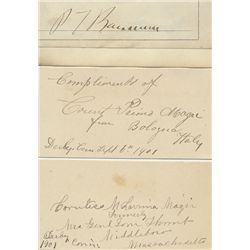 P T Barnum
Compliments of
Count Primo Magri
from Bologna
Italy
Derby Conn Sept 6th 1901
Countess M Lavinia Magri
Formerly
Mrs Genl Tom Thumb
Middleboro
Massachusetts
Derby
1901 Conn